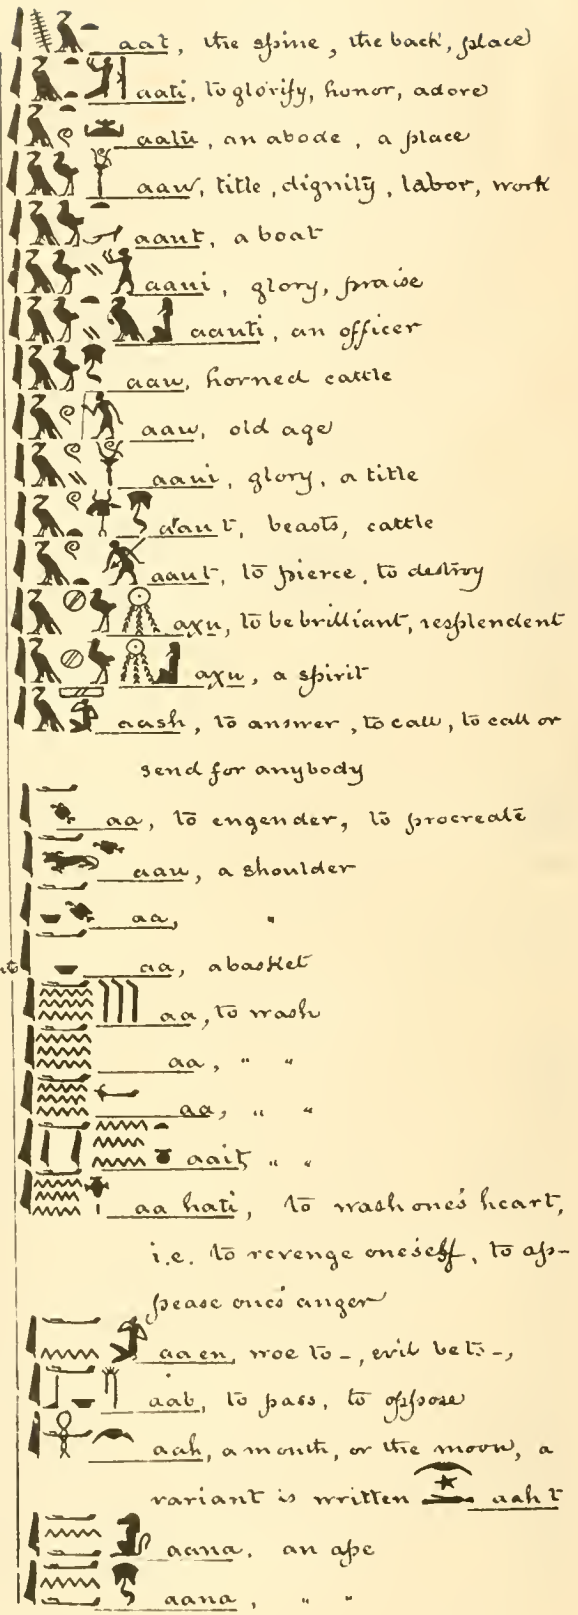 aat, the spine, the back, place
aati, to glorify, honor, adore
aatu, an abode, a place
aaw, title, dignity, labor, work
aaut, a boat
aaui, glory, praise
aauti, an officer
aau, horned cattle
aau, old age
aaui, glory, a title
aaut, beasts, cattle
aaut, to pierce, to destroy
axu, to be brilliant, resplendent
axu, a spirit
aash, to answer, to call, to call or
send for anybody
aa, to engender, to procreate
aau, a shoulder
aa, "
aa, a basket
aa, to wash
aa, " "
aa, " "
aait, " "
aa hati, to wash one's heart,
i.e. to revenge oneself, to ap-
pease one's anger
aa en, woe to -, evil be to -,
aab, to pass, to oppose
aah, a month, or the moon, a
variant is written aah t
aana, an ape
aana, " "